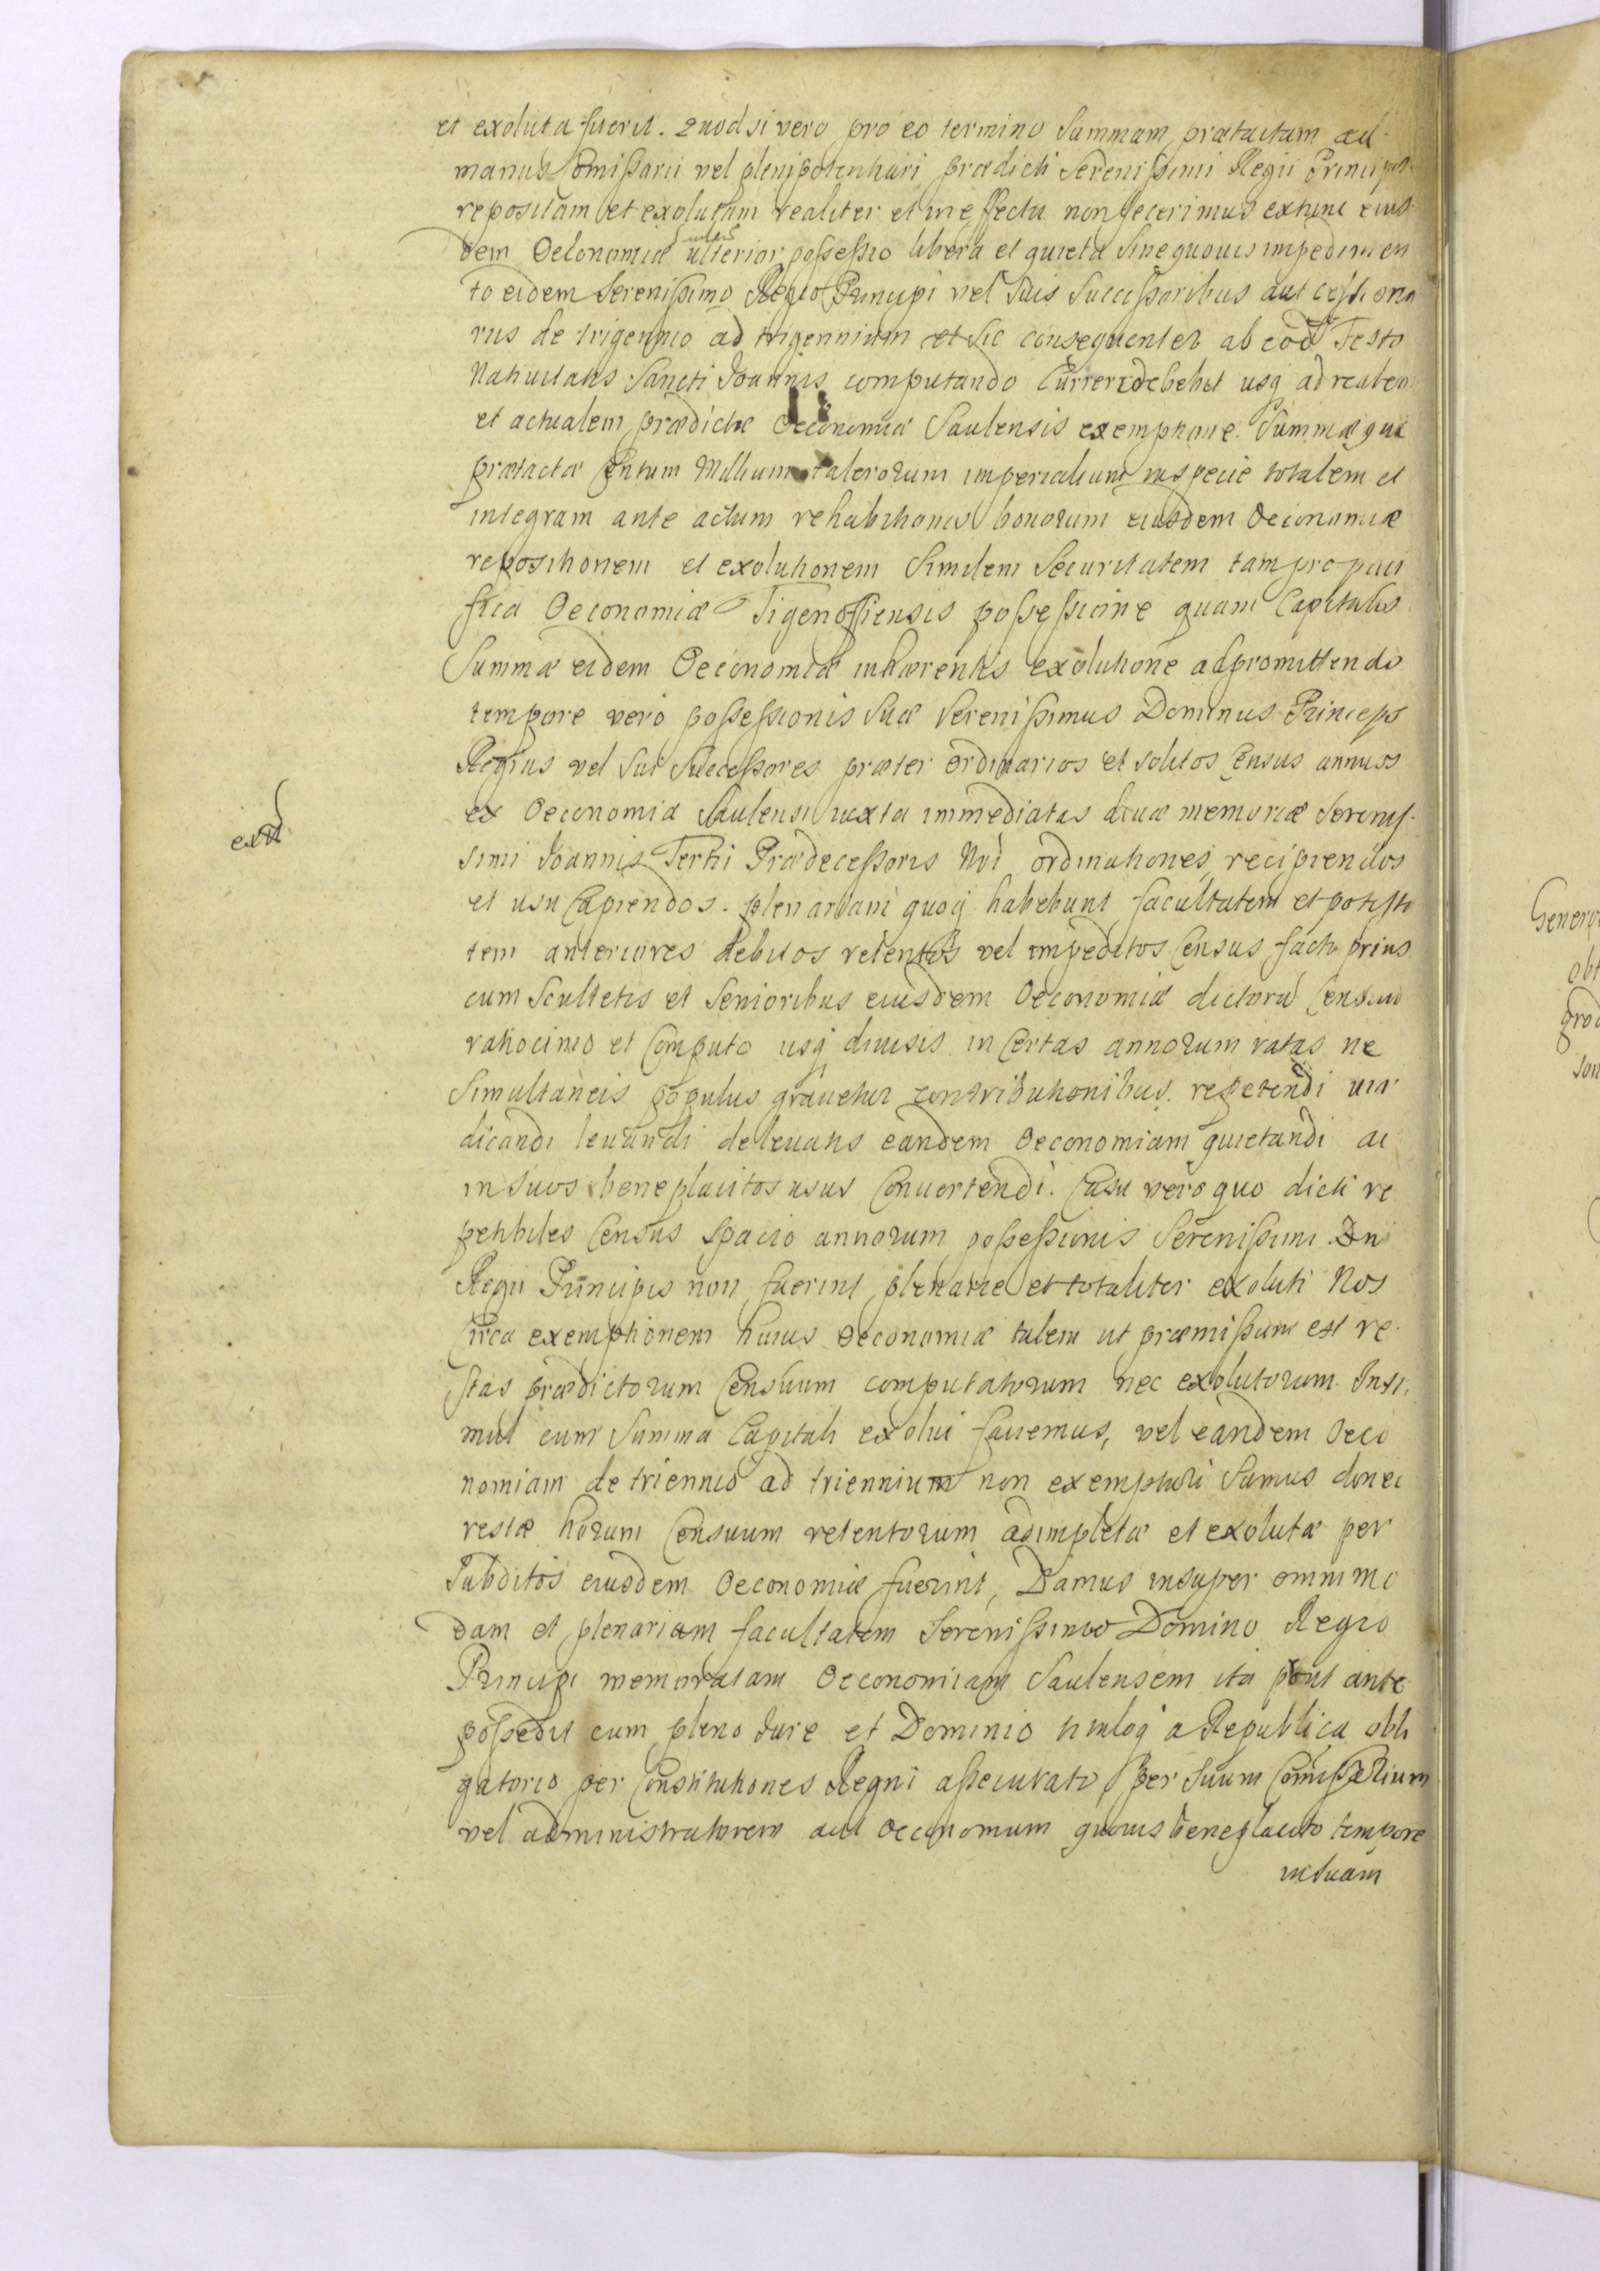 et exoluta fuerit. Quod si vero pro eo termino Summam prætactam ad
manus Comissarii vel plenipotentiarii prædicti Serenissimi Regii Principis
repositam et exolutam realiter et in effectu non fecerimus extunc eius
dem Oeconomiæ ulterior possessio libera et quieta Sine quovis impedimen
to eidem Serenissimo Regio Principi vel Suis Successoribus aut cessiona
riis de trigennio ad trigennium et Sic consequenter ab eod Festo
Nativitatis Sancti Joannis computando Currere debebit usq ad realem
et actualem prædictæ Oeconomiæ Saulensis exemptione. Summæ quæ
prætactæ Centum Millium talerorum imperialium in specie totalem et
integram ante actum rehabitionis bonorum eiusdem Oeconomiæ
repositionem et exolutionem Similem Securitatem tam pro paci
fica Oeconomiæ Tigenoffiensis possessione quam Capitalis
Summæ eidem Oeconomiæ inhærentis exolutione adpromittendo
tempore vero possessionis Suæ Serenissimus Dominus Princeps
Regius vel Sui Successores præter ordinarios et solitos Census annuos
ex Oeconomia Saulensi iuxta immediatas divæ memoriæ Serenis
simi Joannis Tertii Prædecessoris Nri ordinationes recipiendos
et usu Capiendos. plenariam quoq habebunt facultatem et potesta
tem anteriores debitos retentos vel impeditos Census facto prius
cum Scultetis et Senioribus eiusdem Oeconomiæ dictorū Censuū
ratiocinio et Computo usq divisis in Certas annorum ratas ne
Simultaneis populus gravetur contributionibus. repetendi vin
dicandi levandi delevatis eandem Oeconomiam quietandi ac
in Suos beneplacitos usus Convertendi. Casu vero quo dicti re
petibiles Census Spacio annorum possessionis Serenissimi Dni
Regii Principis non fuerint plenarie et totaliter exoluti Nos
Circa exemptionem huius Oeconomiæ talem ut præmissum est re
stas prædictorum Censuum computatorum nec exolutorum Insi
mul cum Summa Capitali exolui faciemus, vel eandem Oeco
nomiam de triennio ad triennium non exempturi Sumus donec
restæ horum Censuum retentorum adimpletæ et exolutæ per
Subditos eiusdem Oeconomiæ fuerint, Damus insuper omnimo
dam et plenariam facultatem Serenissimo Domino Regio
Principi memoratam Oeconomiam Saulensem ita prout ante
possedit cum pleno Jure et Dominio a Republica obli
gatorio per Constitutiones Regni assecurato per Suum Comissarium
vel administratorem aut Oeconomum quovis beneplacito tempore
in Suam
extd